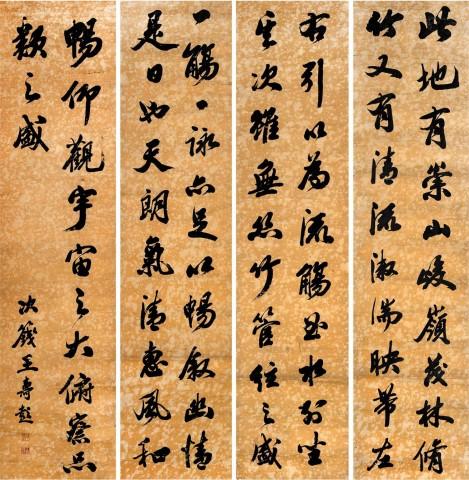 此地有崇山峻嶺茂林脩
竹又有清流激湍映帶左
右引以為流觴曲水列坐
其次雖無絲竹管絃之盛
一觴一詠亦足以暢敘幽情
是日也天朗氣清惠風和
暢仰觀宇宙之大俯察品
類之盛
次籛王壽彭